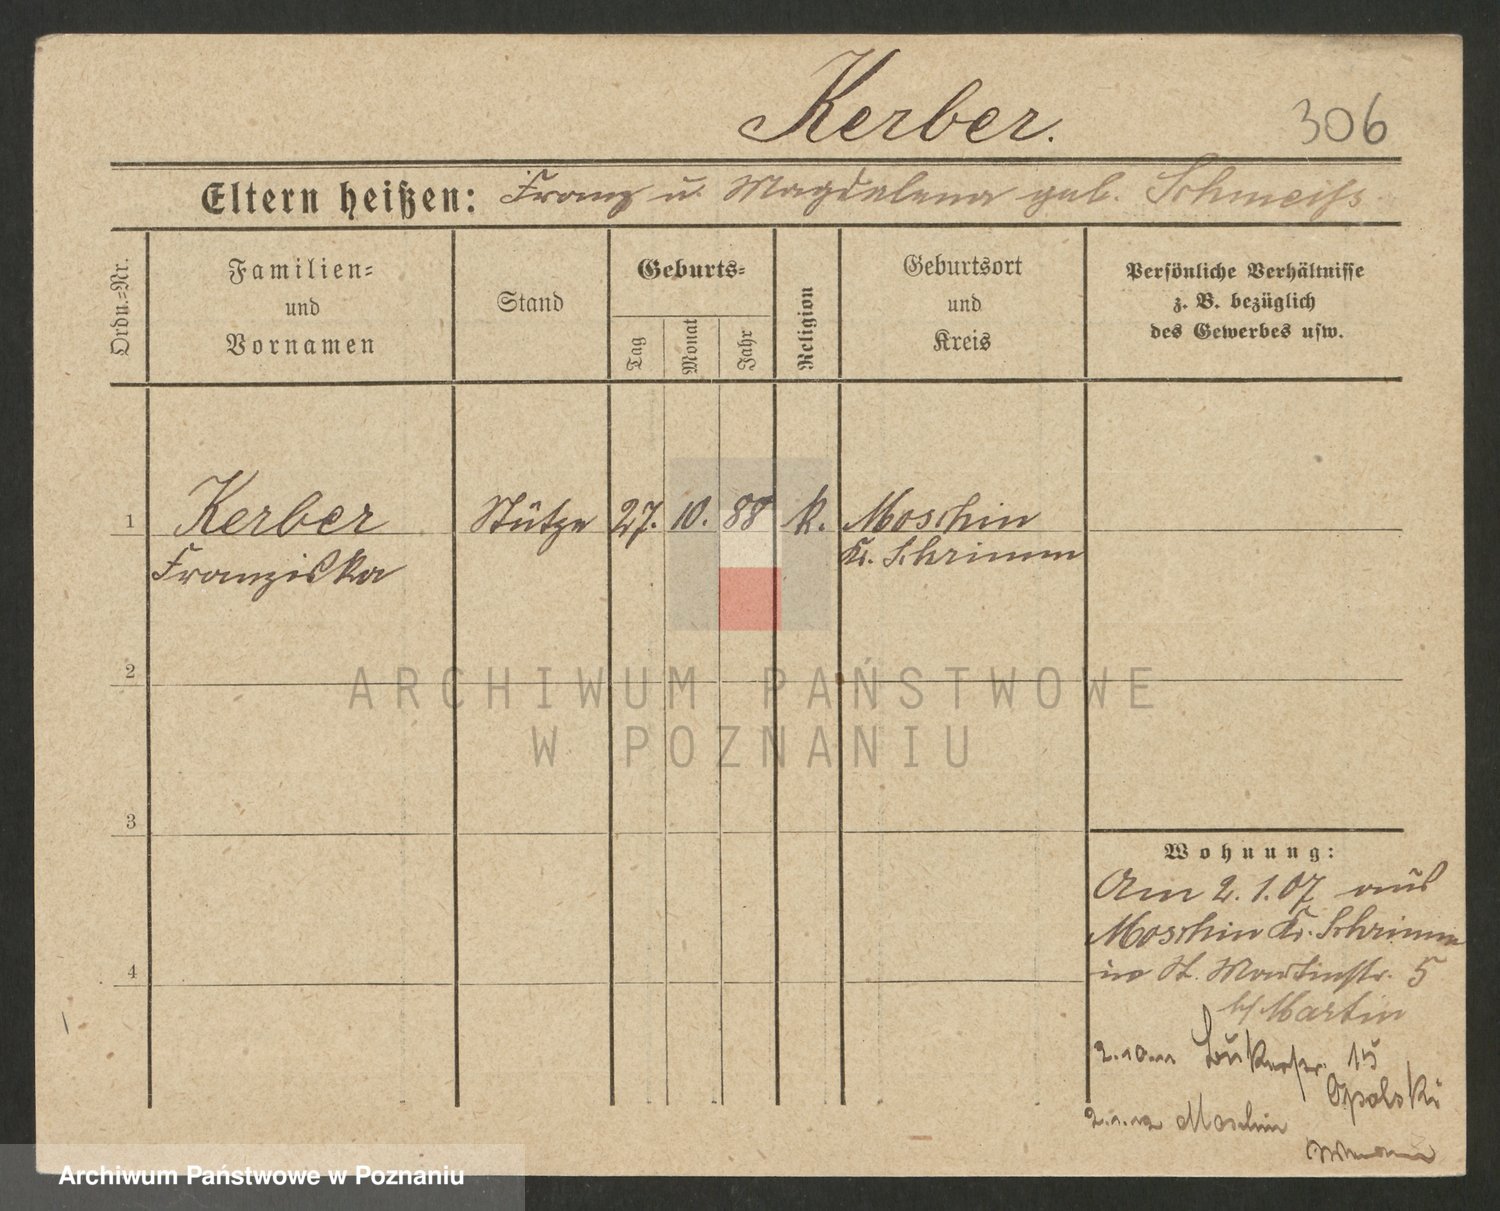 Kerber.
306
Eltern heißen: Franz u. Magdalena geb. Schmeiss
Ordn.=Nr.
Familien=
und
Vornamen
Stand
Geburts=
Tag
Monat
Jahr
Religion
Geburtsort
und
Kreis
Persönliche Verhältnisse
z. B. bezüglich
des Gewerbes usw.
1 Kerber Stütze 27. 10. 88 k. Moschin
Franziska Kr. Schrimm
2
ARCHIWUM PAŃSTWOWE
W POZNANIU
3
Wohnung:
Am 2.1.07 aus
Moschin Kr. Schrimm
in St. Martinstr. 5
b/ Martin
2.10.11 15
Opalski
2.1.12 Moschin
4
Archiwum Państwowe w Poznaniu